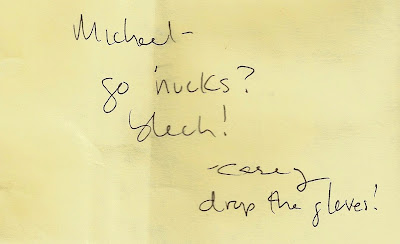 Michael-
go 'nucks?
blech!
-casey
drop the gloves!